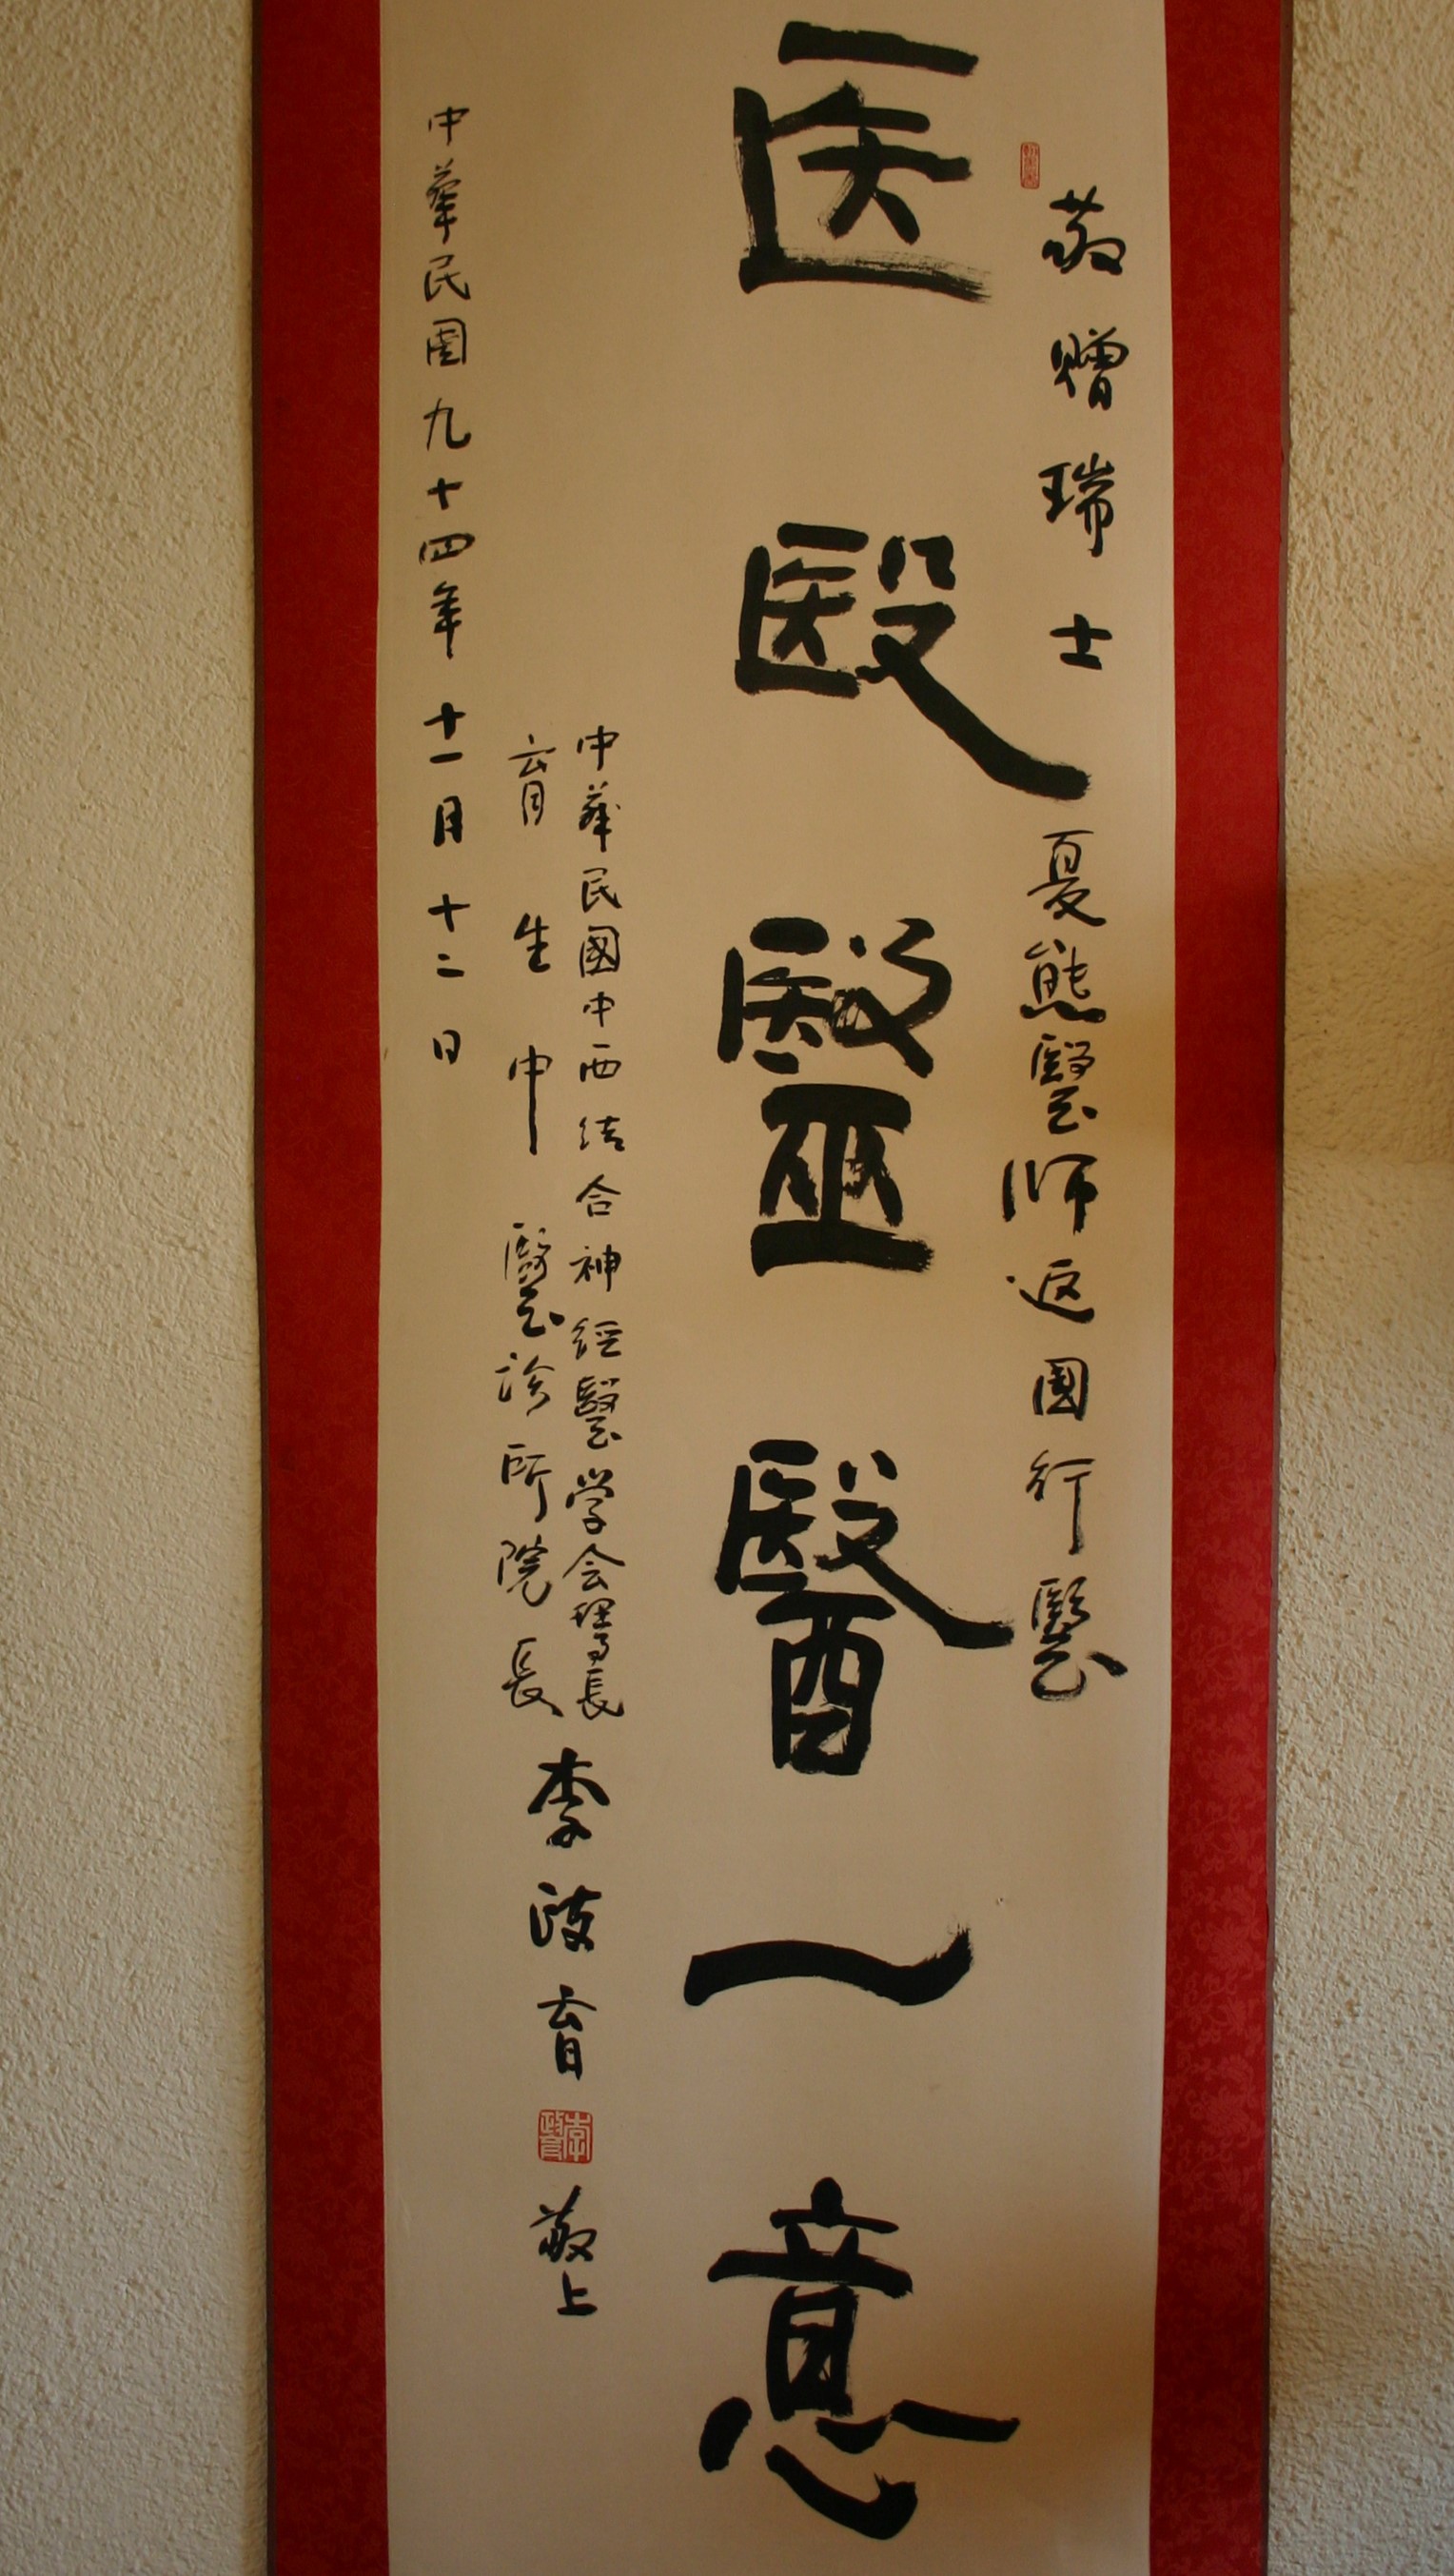 敬贈瑞士夏熊醫師返國行醫
医殹毉醫一意
中華民國中西結合神經醫学会理事長
育生中醫診所院長
李政育敬上
李政育
中華民國九十四年十一月十二日